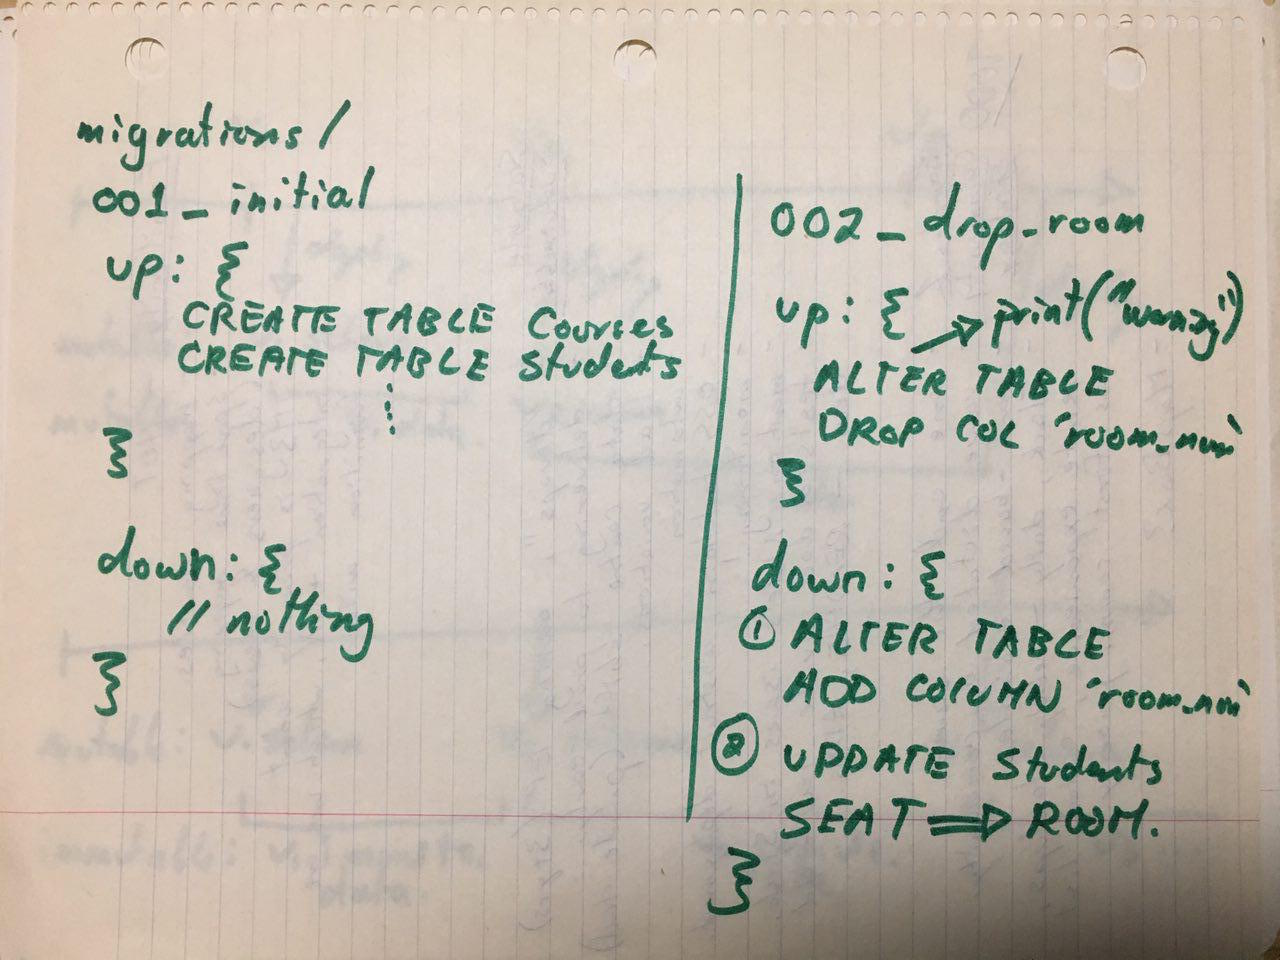 migrations/
001_initial
up: {
CREATE TABLE Courses
CREATE TABLE Students
⋮
}
down: {
// nothing
}
002_drop_room
up: { → print("warning")
ALTER TABLE
DROP COL 'room_num'
}
down: {
① ALTER TABLE
ADD COLUMN 'room_num'
② UPDATE Students
SEAT ⇒ ROOM.
}